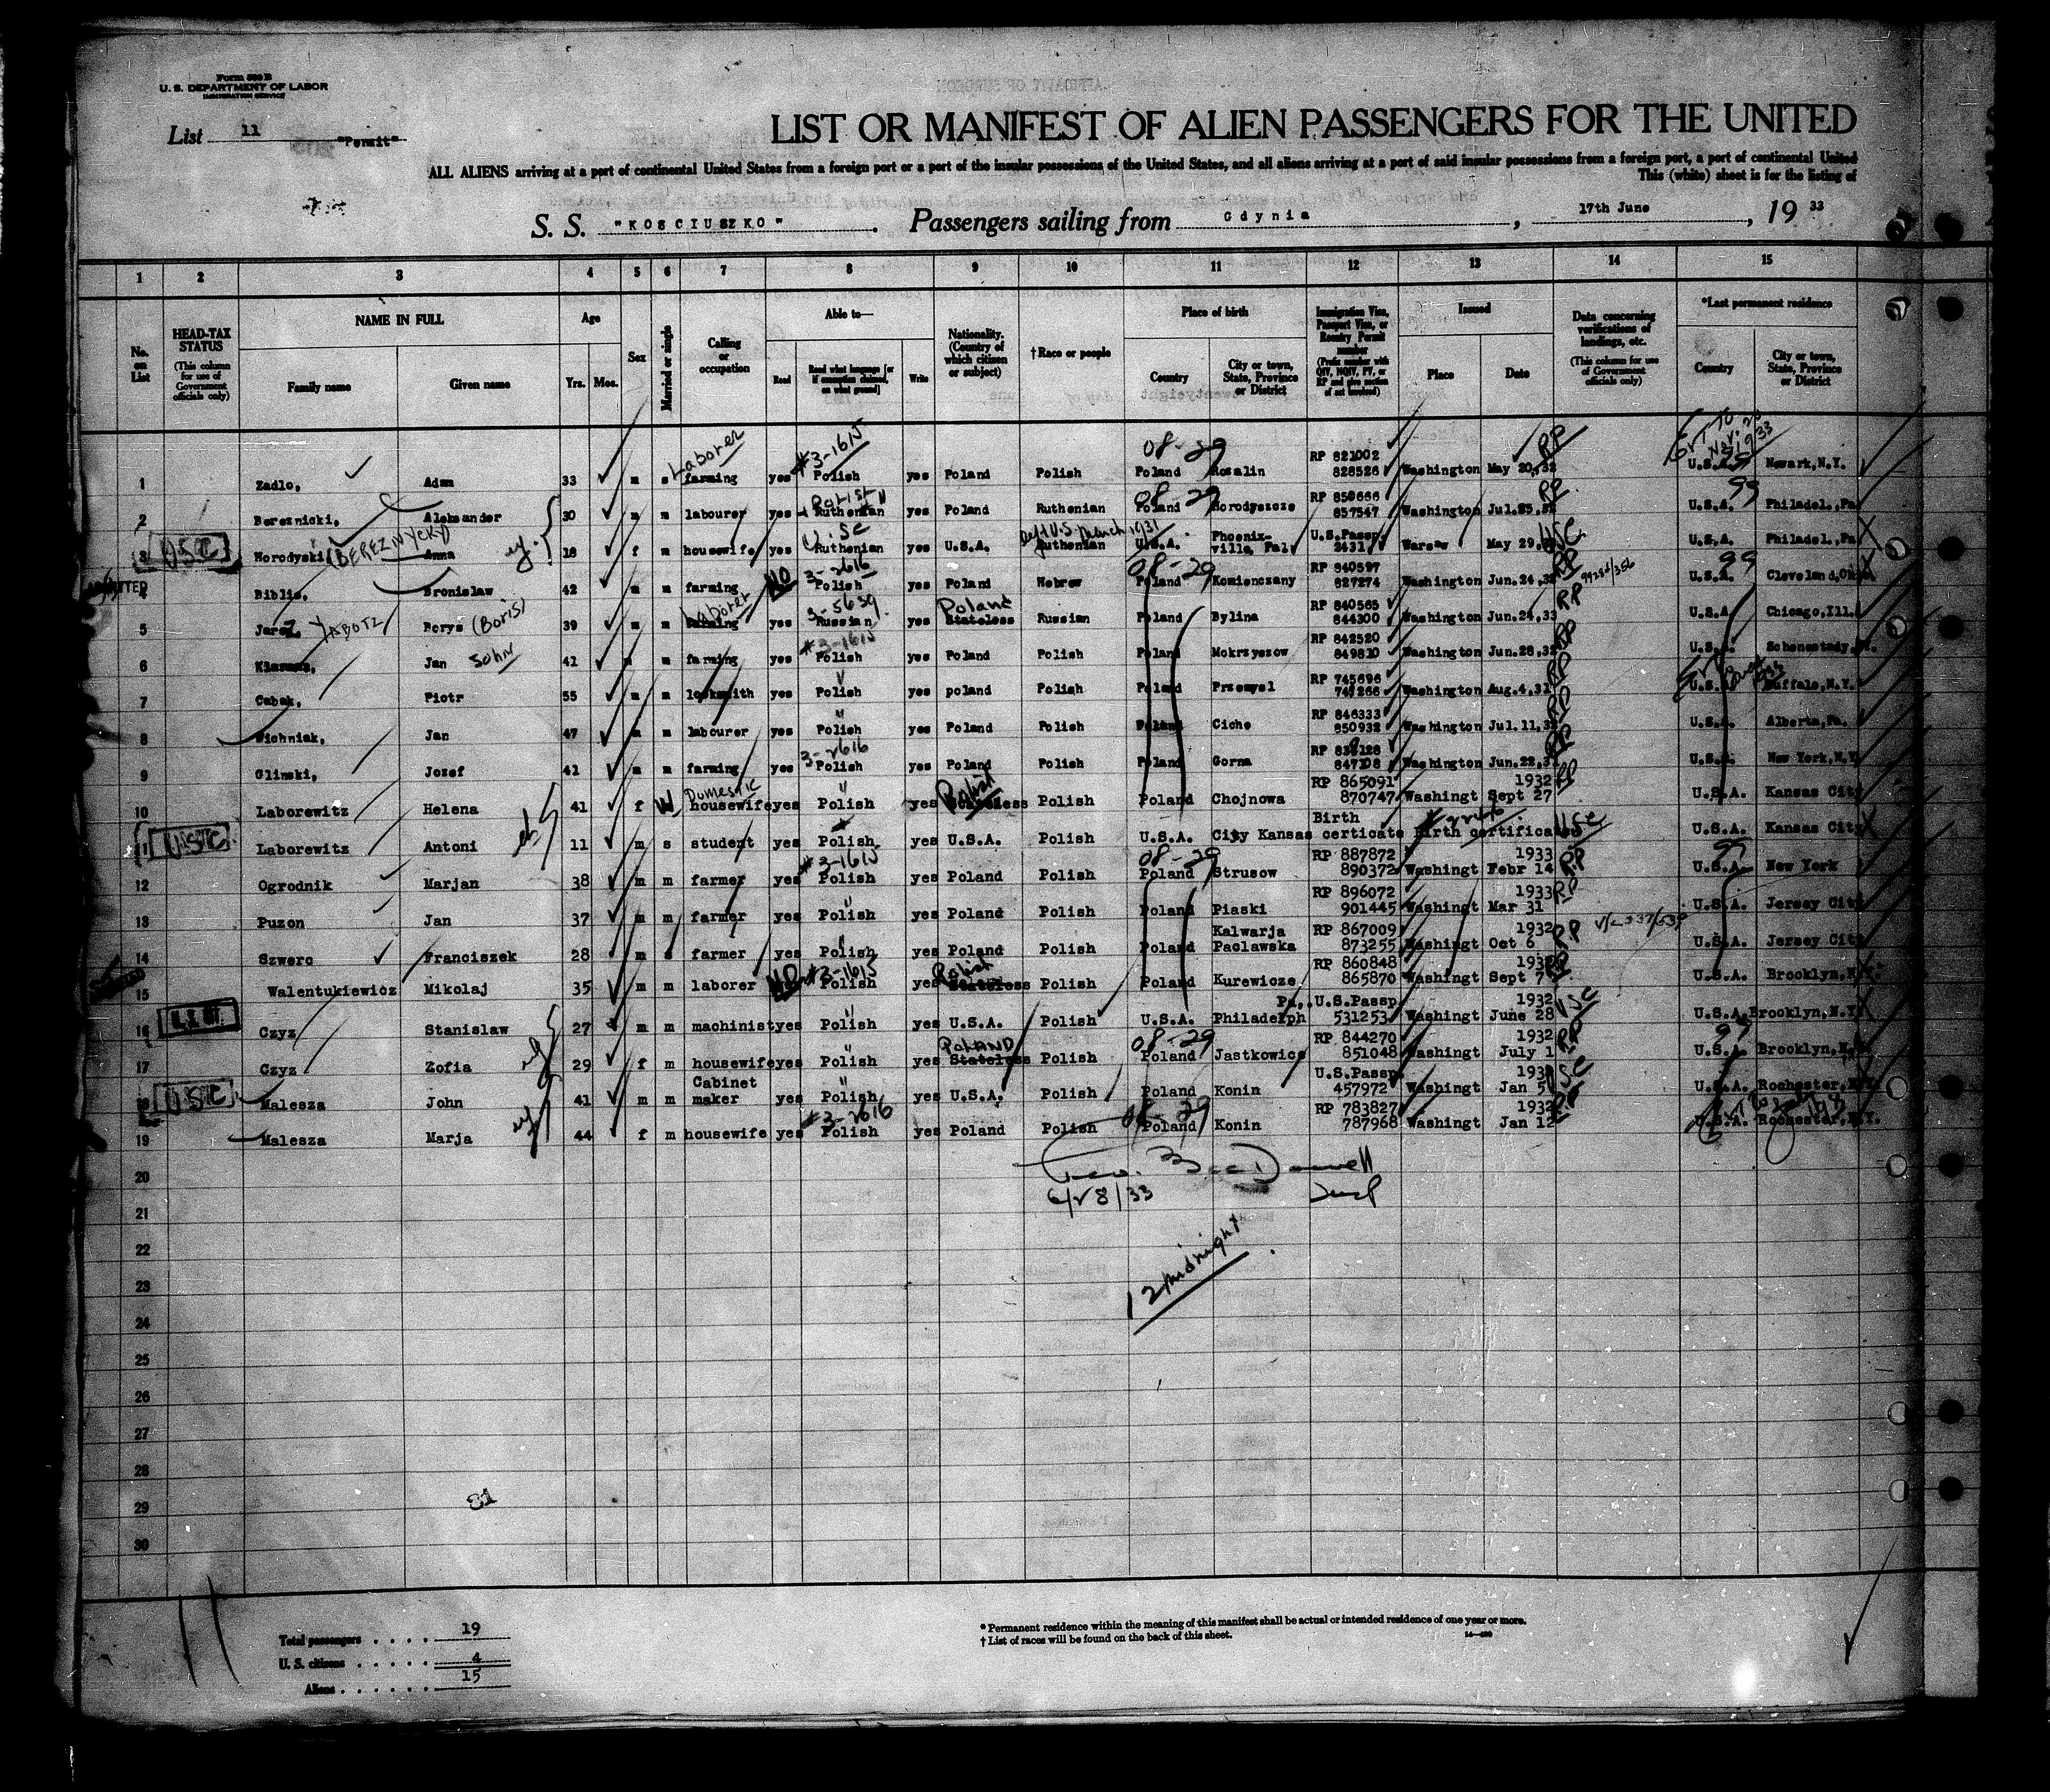 Form 500 B
U. S. DEPARTMENT OF LABOR
IMMIGRATION SERVICE
List 11 "Permit"
LIST OR MANIFEST OF ALIEN PASSENGERS FOR THE UNITED
ALL ALIENS arriving at a port of continental United States from a foreign port or a port of the insular possessions of the United States, and all aliens arriving at a port of said insular possessions from a foreign port, a port of continental United
This (white) sheet is for the listing of
S. S. "KOSCIUSZKO". Passengers sailing from Gdynia, 17th June, 19 33
1 2 3 4 5 6 7 8 9 10 11 12 13 14 15
No. on List
HEAD-TAX STATUS (This column for use of Government officials only)
NAME IN FULL
Family name Given name
Age
Yrs. Mos.
Sex
Married or single
Calling or occupation
Able to—
Read Read what language [or if exemption claimed, on what ground] Write
Nationality. (Country of which citizen or subject)
†Race or people
Place of birth
Country City or town, State, Province or District
Immigration Visa, Passport Visa, or Reentry Permit number (Prefix number with QIV, NQIV, PV, or RP and give section of act involved)
Issued
Place Date
Data concerning verifications of landings, etc. (This column for use of Government officials only)
*Last permanent residence
Country City or town, State, Province or District
1 Zadlo, Adam 33 m s farming Laborer yes #3-1615 Polish yes Poland Polish 08-29 Poland Rozalin RP 821002 828526 Washington May 20,32 RP U.S.A. Newark,N.Y.
2 Bereznicki, Aleksander 30 m m labourer yes Polish Ruthenian yes Poland Ruthenian 08-29 Poland Horodyszcze RP 850666 857547 Washington Jul.25,32 RP 99 U.S.A. Philadel.,Pa
3 USC Horodyski (BEREZNYCKY) Anna 18 f m housewife yes U.SC Ruthenian yes U.S.A. left U.S. March 1931 Ruthenian U.S.A. Phoenixville, Pal U.S.Passp. 2431 Warsaw May 29, USC U.S.A. Philadel.,Pa
4 ADMITTED Biblis, Bronislaw 42 m m farming NO 3-2616 Polish yes Poland Hebrew 08-29 Poland Komienczany RP 840597 827274 Washington Jun.24,32 RP 99 U.S.A. Cleveland,Ohio
5 Jarez YABOTZ Borys (Boris) 39 m m farming Laborer yes 3-5639 Russian yes Poland Stateless Russian Poland Bylina RP 840565 844300 Washington Jun.24,33 RP U.S.A Chicago,Ill.
6 Jan John 41 m farming yes #3-1615 Polish yes Poland Polish Poland Mokrzyszow RP 842520 849810 Washington Jun.28,32 RP U.S.A. Schenectady,
7 Cabak, Piotr 55 m m locksmith yes Polish yes poland Polish Poland Przemysl RP 745696 Washington Aug.4,31 RP U.S.A. Buffalo,N.Y.
8 Wichniak, Jan 47 m m labourer yes " Polish yes Poland Polish Poland Ciche RP 846333 850932 Washington Jul.11,32 RP U.S.A. Alberta,Pa.
9 Glinski, Jozef 41 m m farming yes 3-2616 Polish yes Poland Polish Poland Gorna RP 847108 Washington Jun.22,32 RP U.S.A. New York,N.Y
10 Laborewitz Helena 41 f W Domestic housewife yes " Polish yes Polish Stateless Polish Poland Chojnowa RP 865091 870747 Washingt 1932 Sept 27 RP U.S.A. Kansas City
11 USC Laborewitz Antoni 11 m s student yes Polish yes U.S.A. Polish U.S.A. City Kansas Birth certicate Birth certificate USC U.S.A. Kansas City
12 Ogrodnik Marjan 38 m m farmer yes #3-1615 Polish yes Poland Polish 08-29 Poland Strusow RP 887872 890372 Washingt 1933 Febr 14 RP 99 U.S.A. New York
13 Puzon Jan 37 m m farmer yes " Polish yes Poland Polish Poland Piaski RP 896072 901445 Washingt 1933 Mar 31 RP U.S.A. Jersey City
14 Szwerc Franciszek 28 m s farmer yes " Polish yes Poland Polish Poland Kalwarja Paclawska RP 867009 873255 Washingt 1932 Oct 6 RP U.S.A. Jersey City
15 Walentukiewicz Mikolaj 35 m m laborer NO #3-1615 Polish yes Polish Stateless Polish Poland Kurewicze RP 860848 865870 Washingt 1932 Sept 7 RP U.S.A. Brooklyn,N.Y.
16 Czyz Stanislaw 27 m m machinist yes " Polish yes U.S.A. Polish U.S.A. Philadelph Pa. U.S.Passp. 531253 Washingt 1932 June 28 USC U.S.A. Brooklyn,N.Y
17 Czyz Zofia 29 f m housewife yes " Polish yes POLAND Stateless Polish 08-29 Poland Jastkowice RP 844270 851048 Washingt 1932 July 1 RP 99 U.S.A. Brooklyn,N.Y.
18 USC Malesza John 41 m m Cabinet maker yes " Polish yes U.S.A. Polish Poland Konin U.S.Passp. 457972 Washingt Jan 5 USC U.S.A. Rochester,N.Y.
19 Malesza Marja 44 f m housewife yes #3-2616 Polish yes Poland Polish 08-29 Poland Konin RP 783827 787968 Washingt 1932 Jan 12 RP U.S.A. Rochester,N.Y.
20
6/28/33
21
22
12 midnight
23
24
25
26
27
28
29
30
Total passengers . . . . 19
U. S. citizens . . . . . 4
Aliens . . . . . . 15
* Permanent residence within the meaning of this manifest shall be actual or intended residence of one year or more.
† List of races will be found on the back of this sheet.